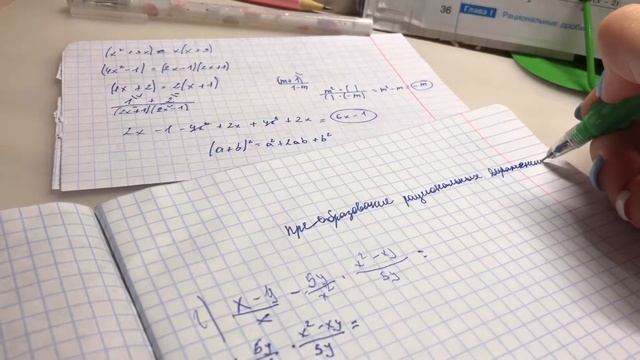 36 Глава I Рациональные дроби
(x² + 3x) = x(x+3)
(4x²-1) = (2x-1)(2x+1)
(2x+2) = 2(x+1)
(2x+1)(2x-1)
2x - 1 - 4x² + 2x + 4x² + 2x = 6x-1
(a+b)² = a² + 2ab + b²
= m³-m
Преобразование рациональных выражений
x-y/x - 5y/x² · x²-xy/5y =
5y · x²-xy/5y =